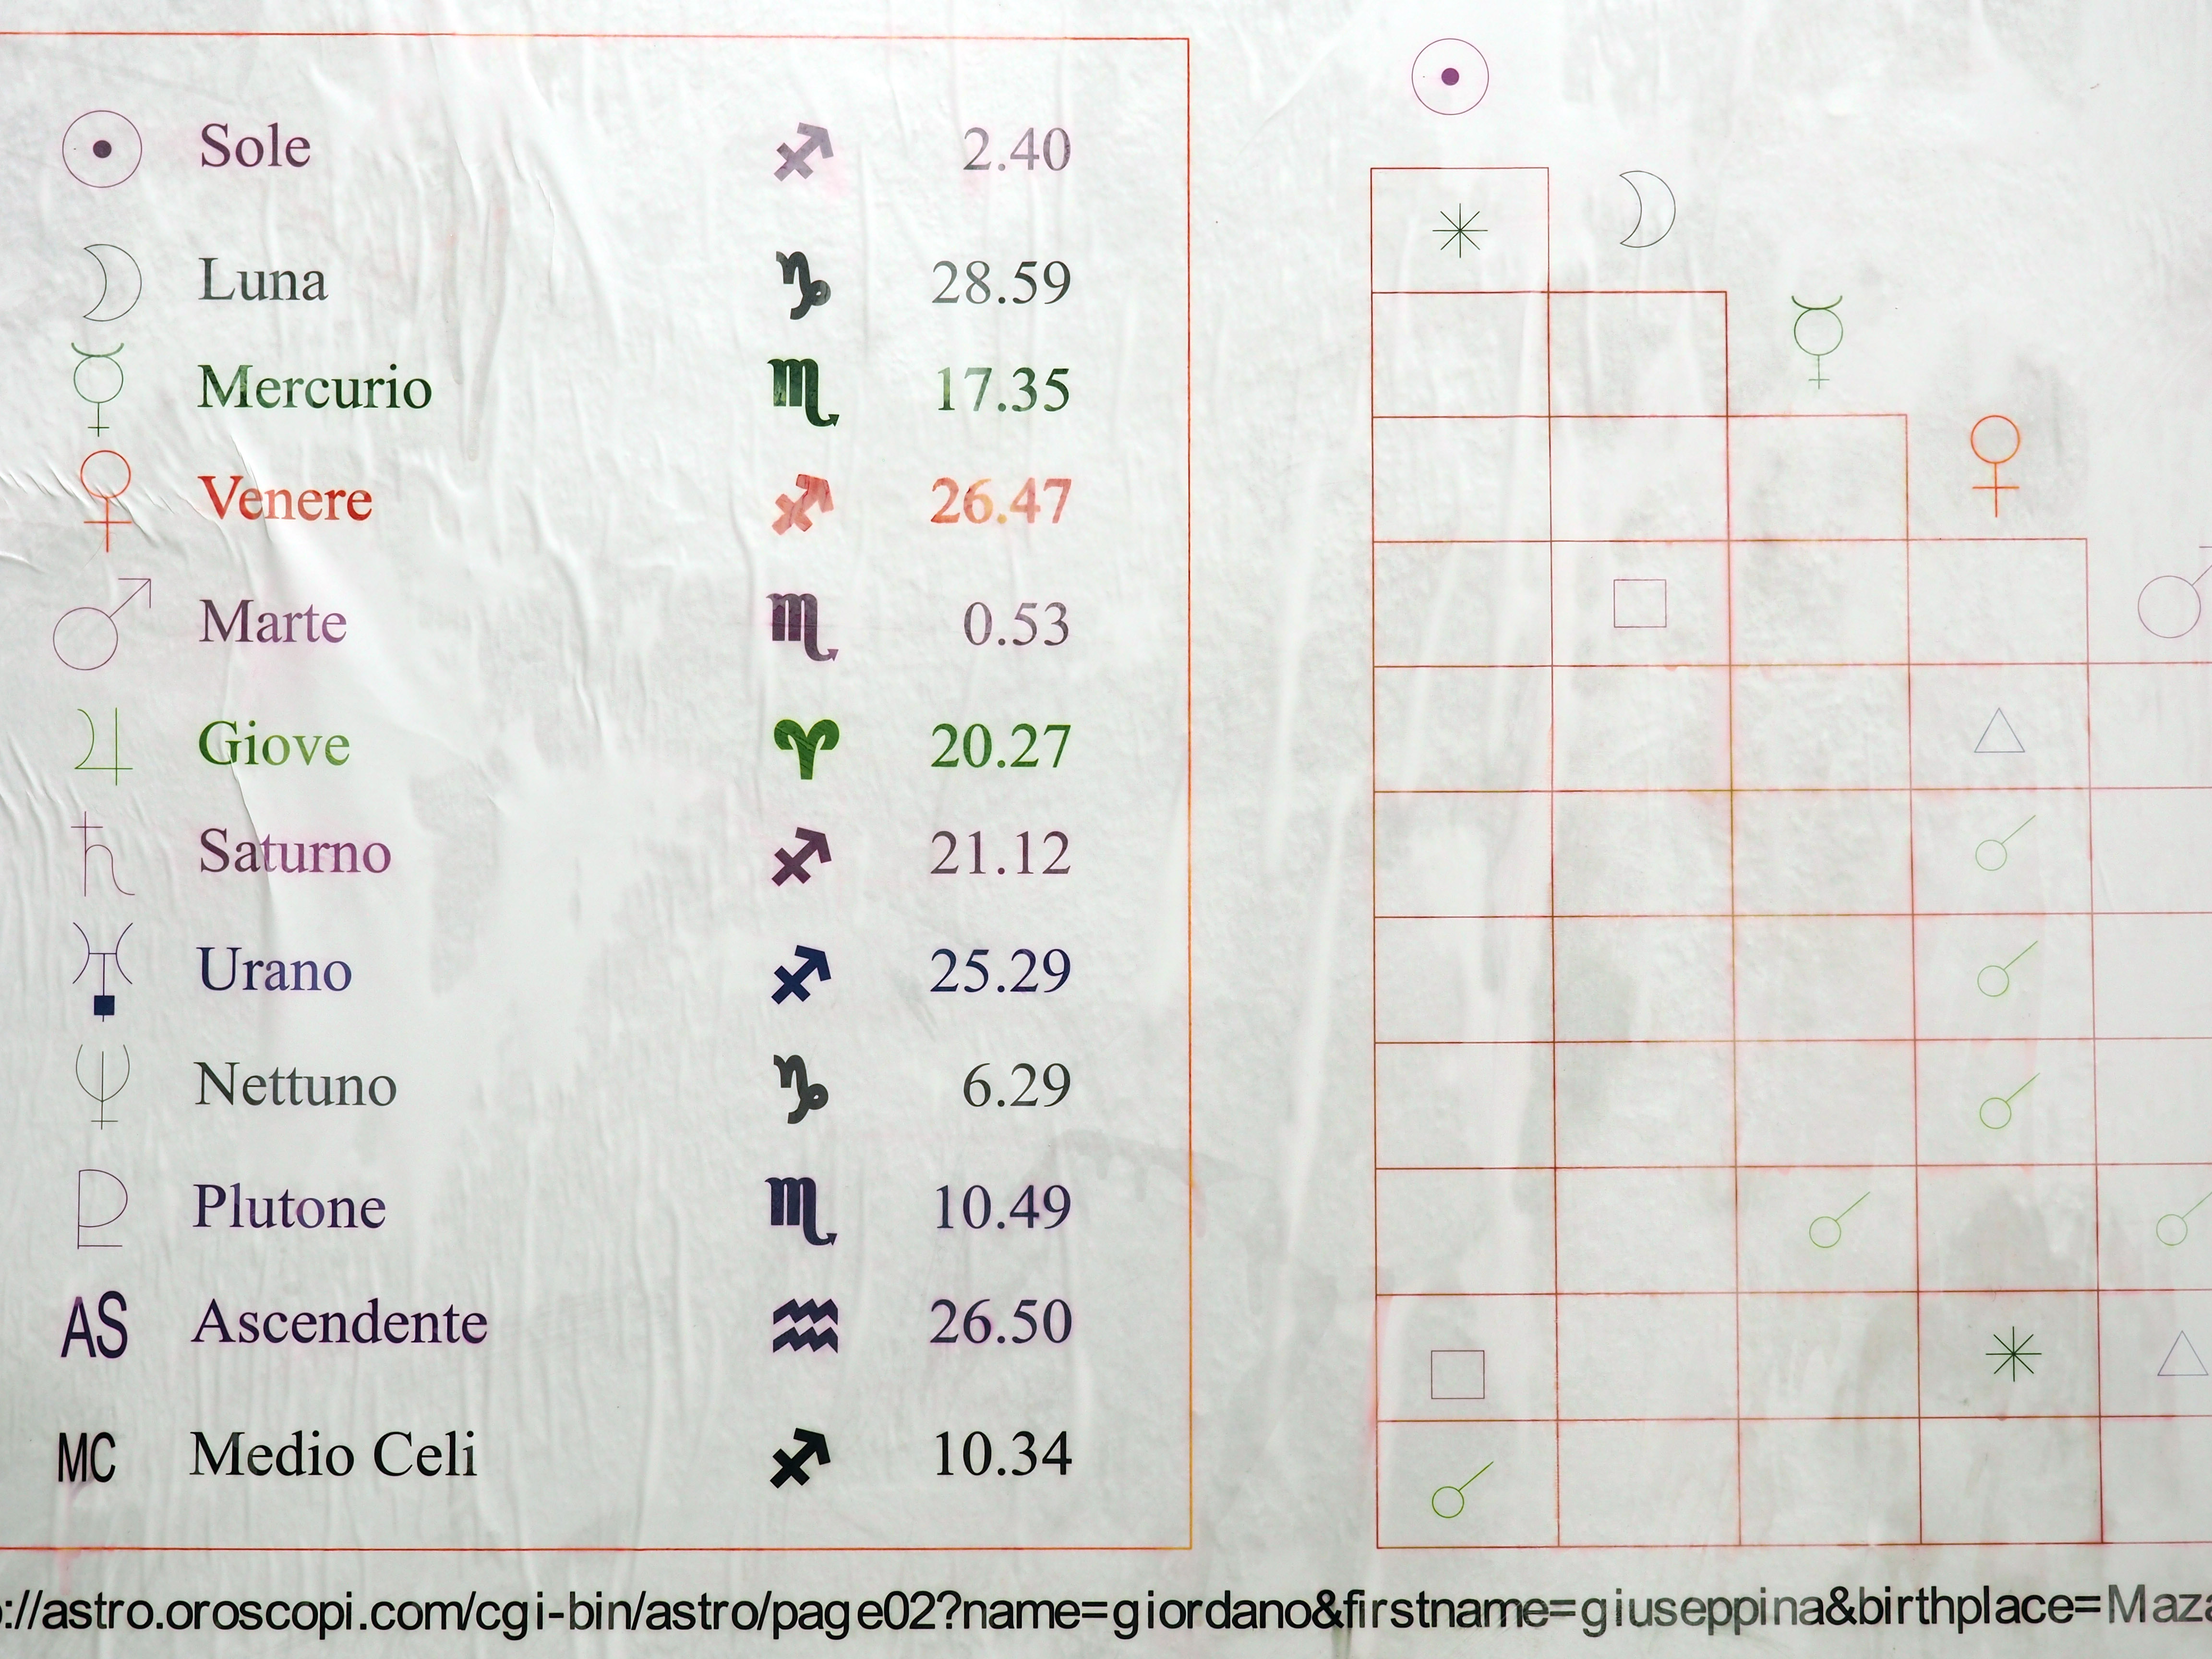 Sole ♐ 2.40
Luna ♑ 28.59
Mercurio ♏ 17.35
Venere ♐ 26.47
Marte ♏ 0.53
Giove ♈ 20.27
Saturno ♐ 21.12
Urano ♐ 25.29
Nettuno ♑ 6.29
Plutone ♏ 10.49
AS Ascendente ♒ 26.50
MC Medio Celi ♐ 10.34
://astro.oroscopi.com/cgi-bin/astro/page02?name=giordano&firstname=giuseppina&birthplace=Maza